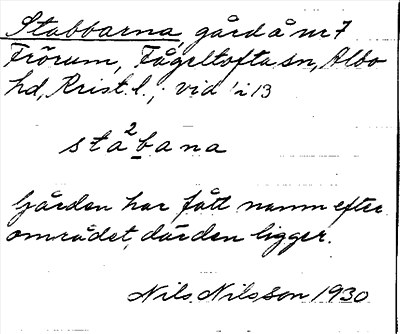 Stabbarna, gård å nr 7
Frörum, Fågeltofta sn, Albo
hd, Krist. l.; vid i 13
sta²bana
Gården har fått namn efter
området, där den ligger.
Nils Nilsson 1930